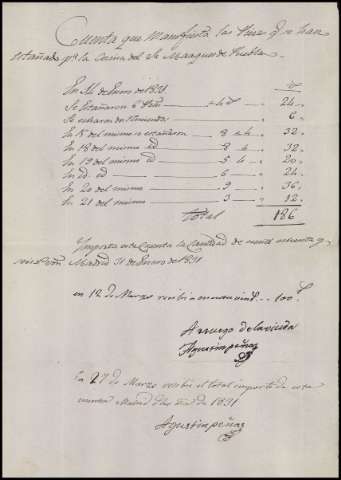 Cuenta que Manifiesta las Piezas q.e se han
estañado p.a la Cocina del S.r Marques de Puebla
En 14 de Enero de 1831
Se Estañaron 6 4 24
Se echaron 6
En 15 del mismo se estañaron 8 4 32
En 18 del mismo id 8 4 32
En 19 del mismo id 5 4 20
En id id 6 24
En 20 del mismo 9 36
En 21 del mismo 3 12
Total 186
Importa esta Cuenta la Cantidad de ochenta y
seis Madrid 31 de Enero de 1831
en 12 de Marzo recibi a cuenta 100
A ruego de la viuda
Agustin peñas
En 27 de Marzo recibi el total importe de esta
cuenta Madrid dho dia de 1831
Agustin peñas